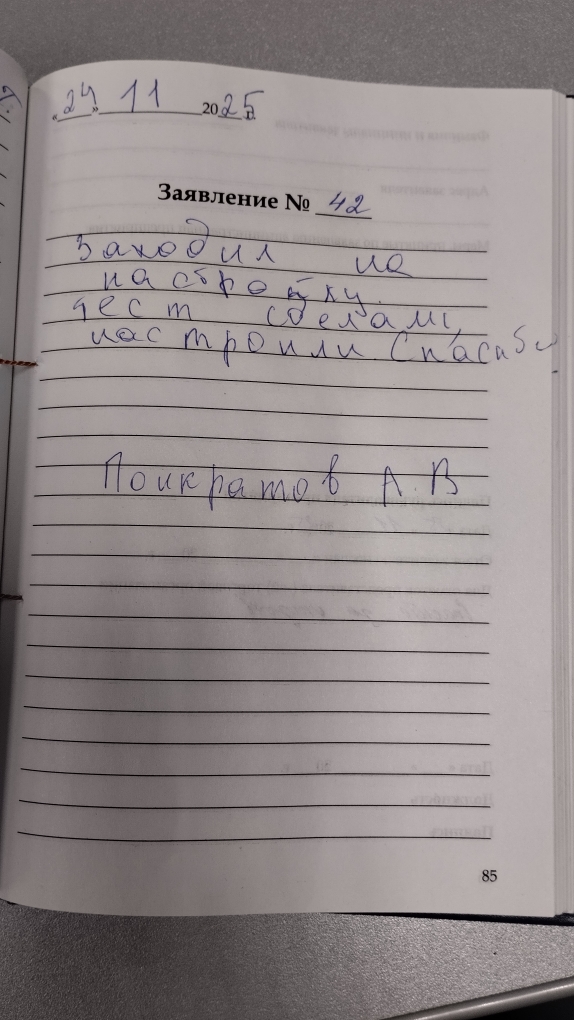 «24» 11 2025 г.
Заявление № 42
Заходил на
настройку.
тест сделали,
настроили. Спасибо
Панкратов А.В
85